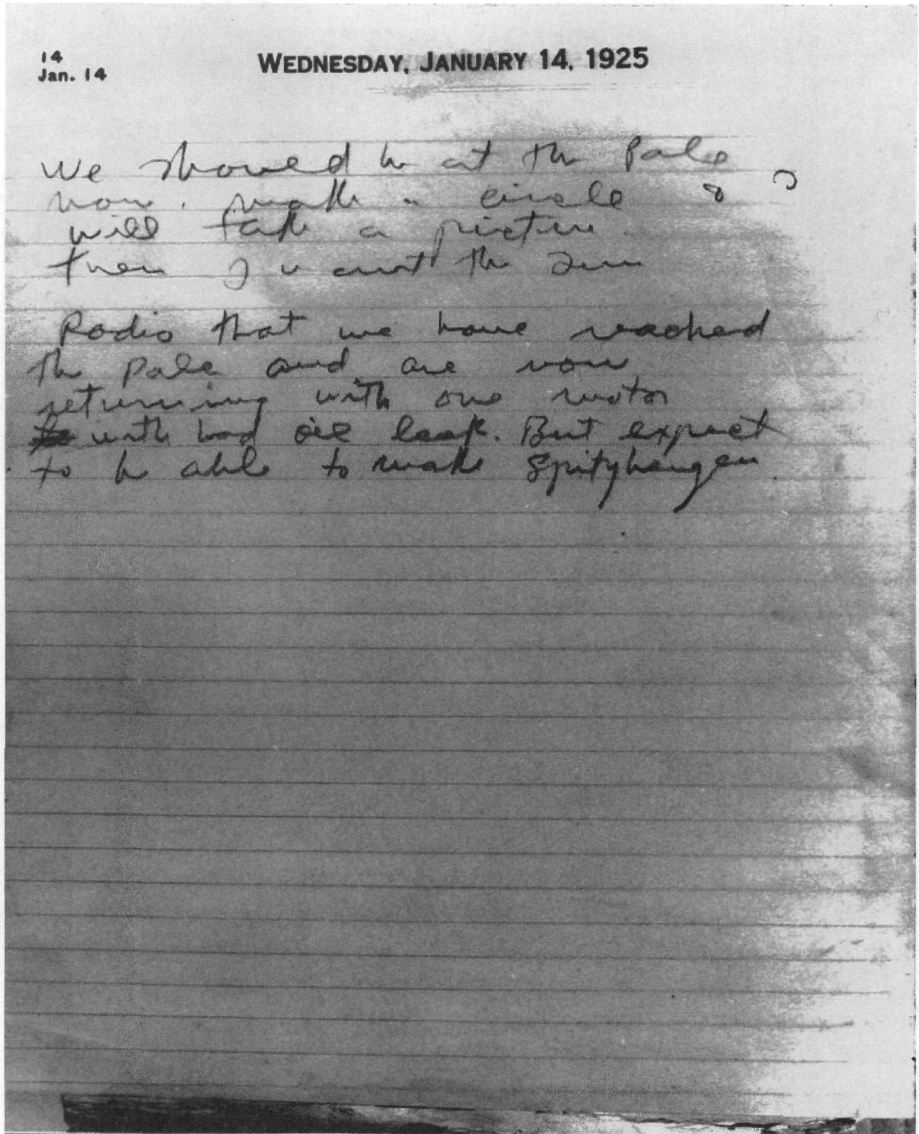 14
Jan. 14
WEDNESDAY, JANUARY 14, 1925
We should be at the Pole
now. make a circle & I
will take a picture.
then I want the sun
Radio that we have reached
the pole and are now
returning with one motor
with bad oil leak. But expect
to be able to make Spitzbergen